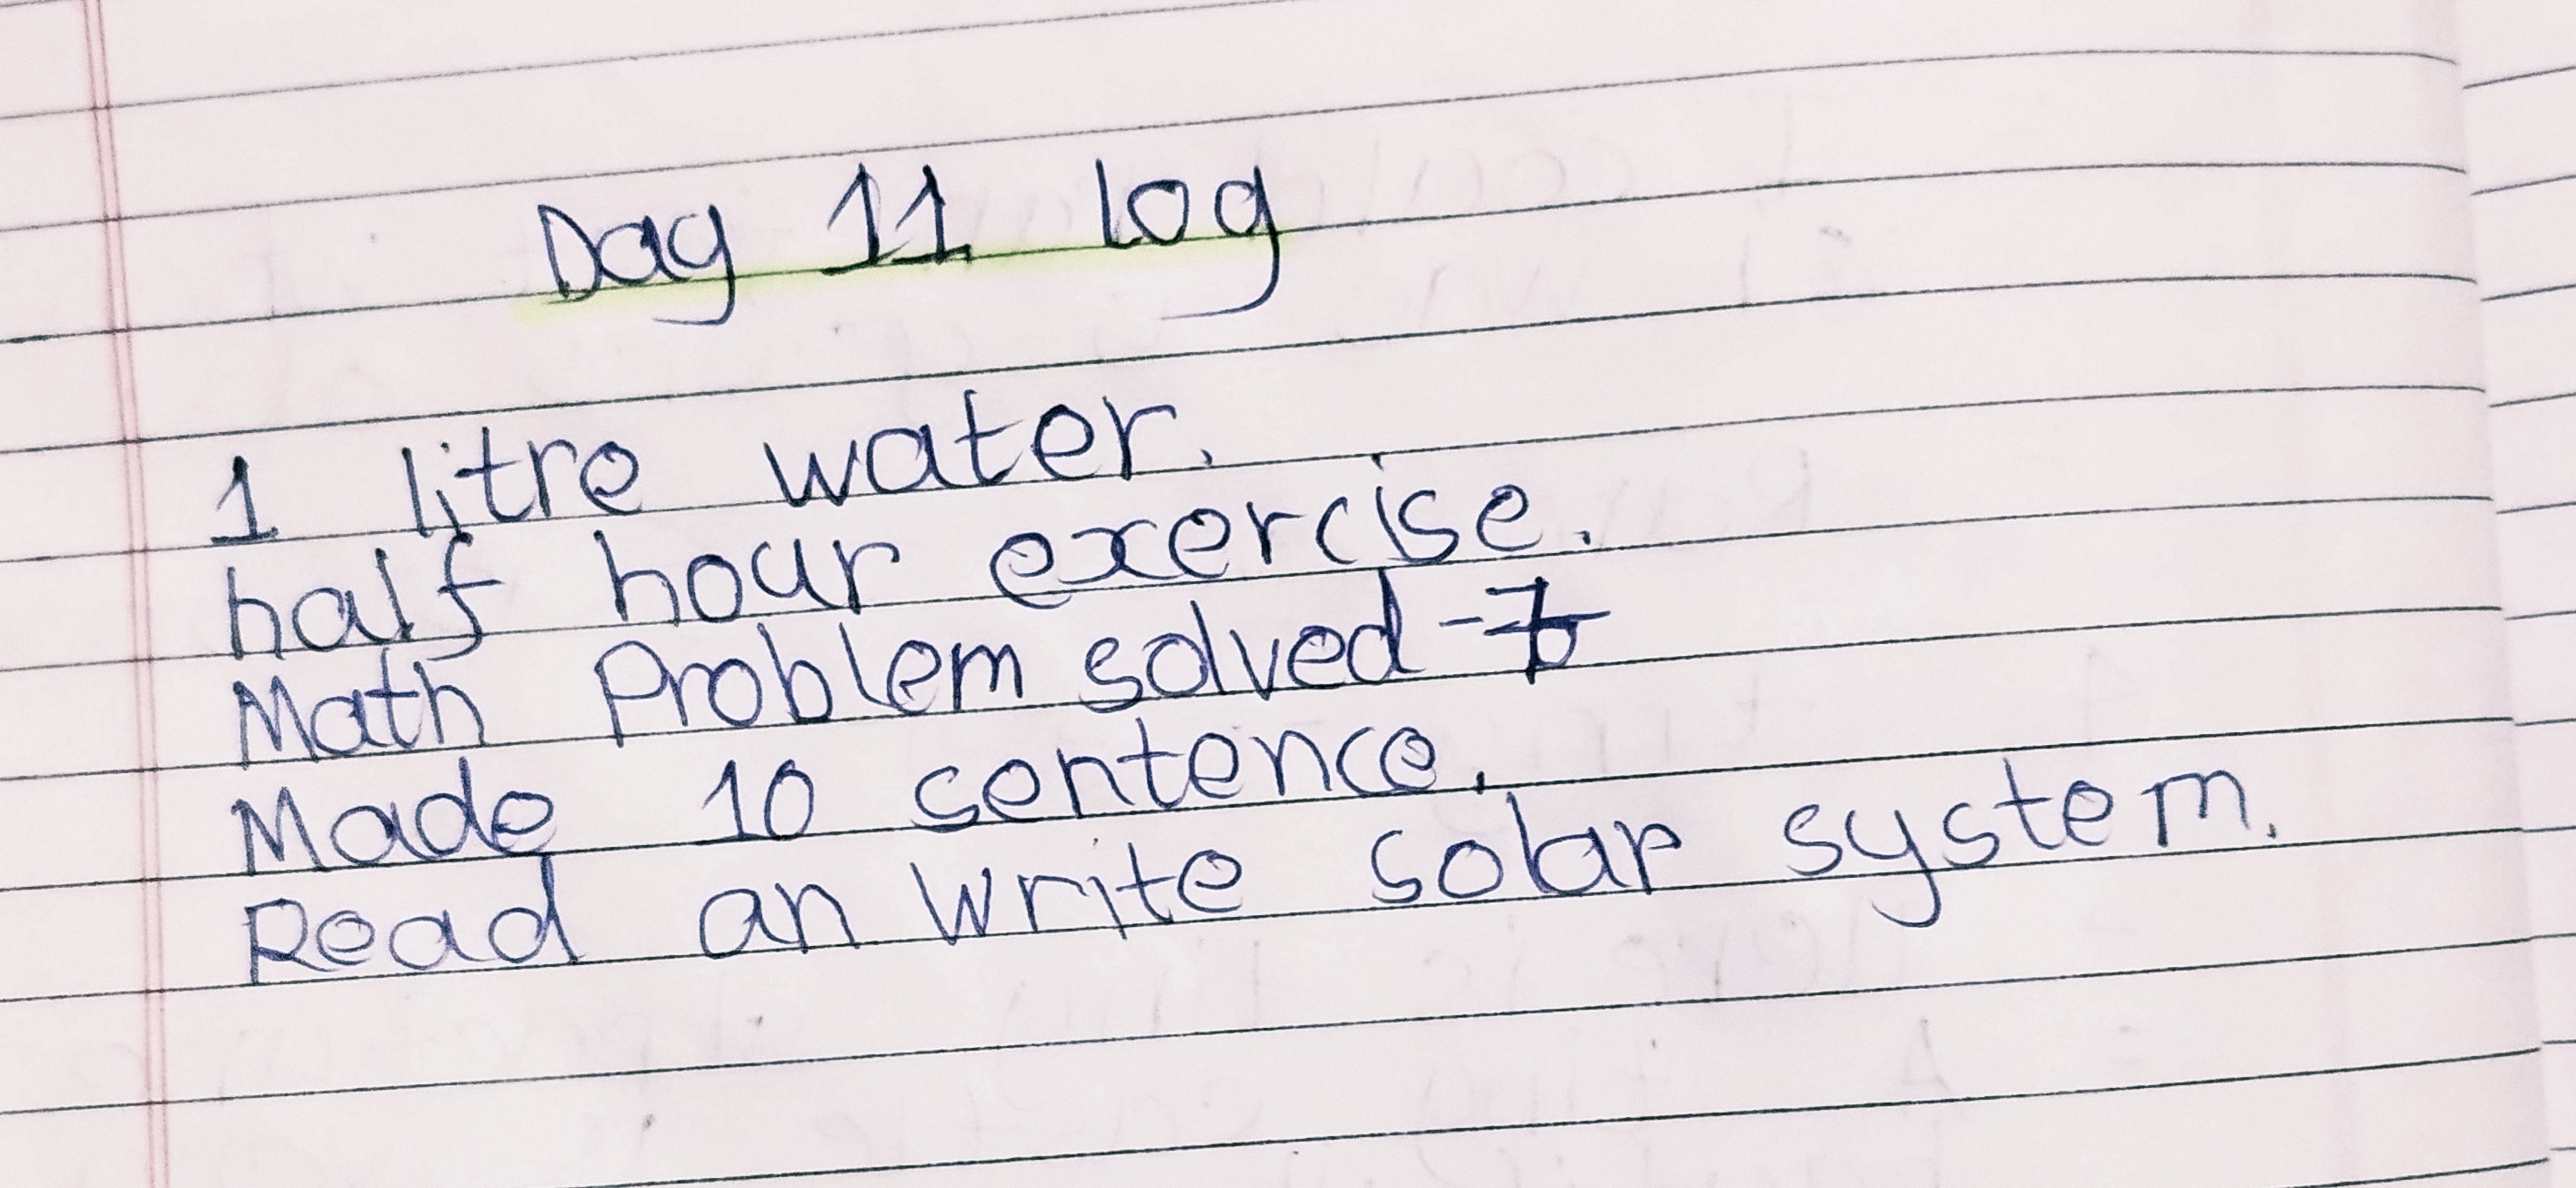 Day 11 log
1 litre water.
half hour exercise.
Math Problem solved -
Made 10 sentence.
Read an write solar system.